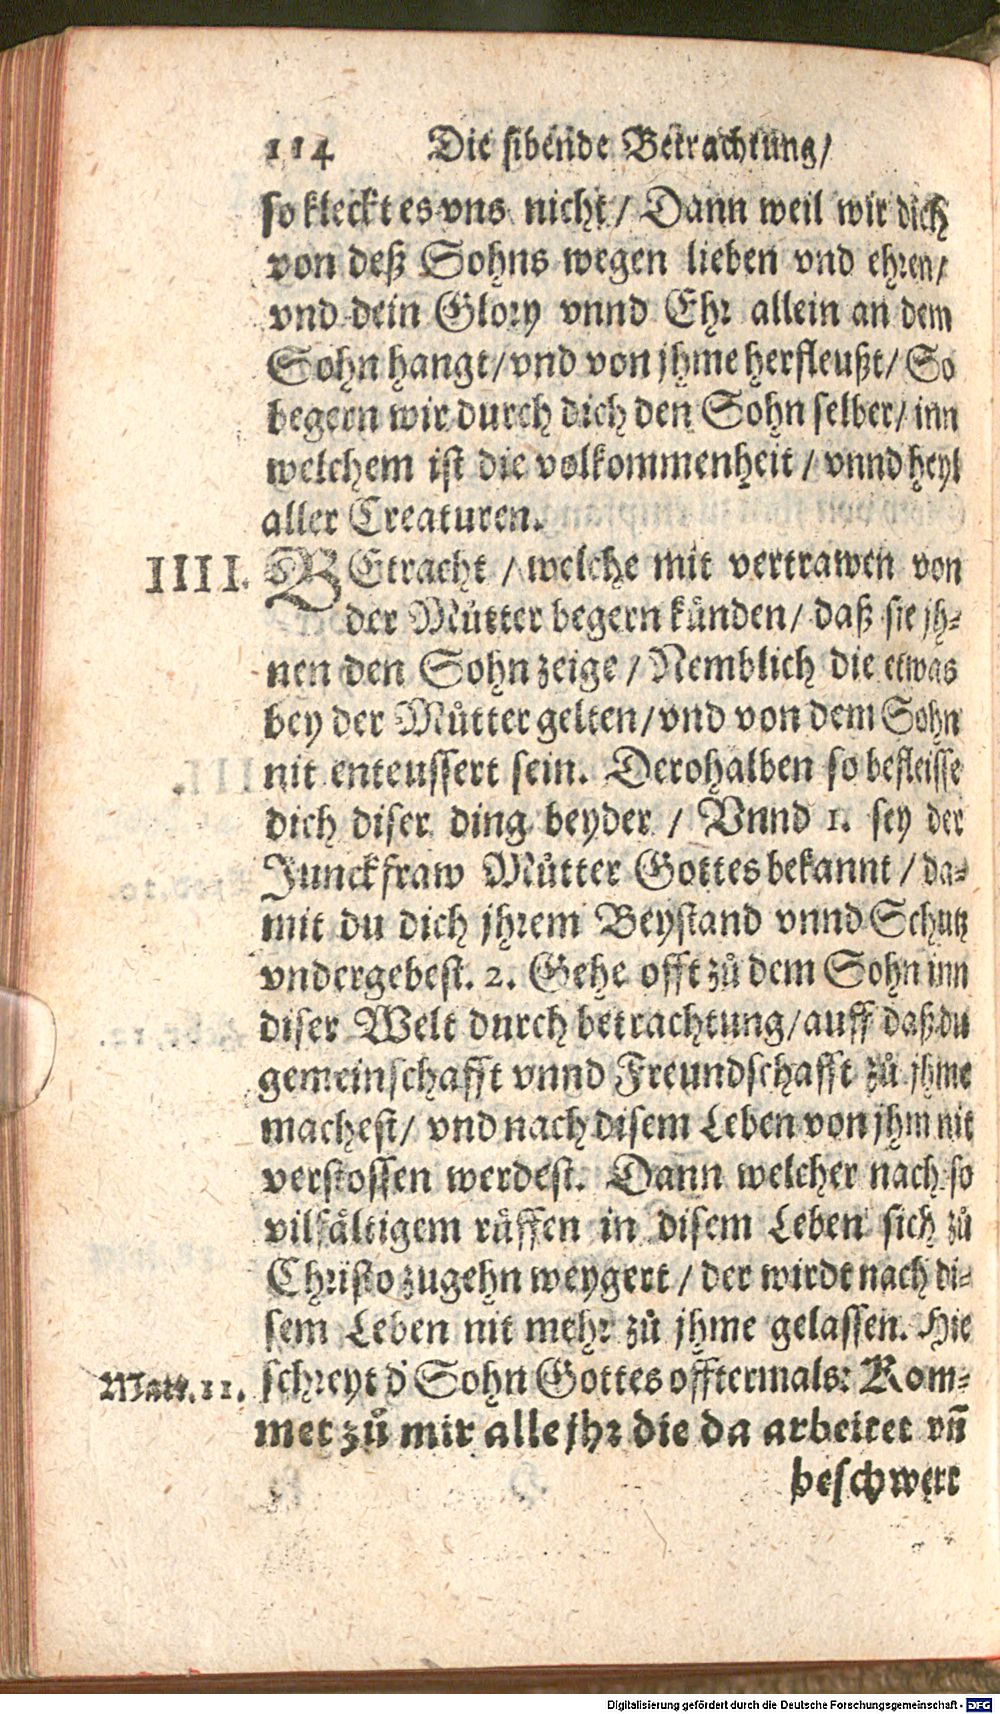 114 Die sibende Betrachtung/
so kleckt es vns nicht/ Dann weil wir dich
von deß Sohns wegen lieben vnd ehren/
vnd dein Glory vnnd Ehr allein an dem
Sohn hangt/ vnd von jhme herfleußt/ So
begern wir durch dich den Sohn selber/ inn
welchem ist die volkommenheit/ vnnd heyl
aller Creaturen.
IIII. BEtracht/ welche mit vertrawen von
der Můtter begern künden/ daß sie jh-
nen den Sohn zeige/ Nemblich die etwas
bey der Můtter gelten/ vnd von dem Sohn
nit enteussert sein. Derohalben so befleisse
dich diser ding beyder/ Vnnd 1. sey der
Junckfraw Můtter Gottes bekannt/ da-
mit du dich jhrem Beystand vnnd Schutz
vndergebest. 2. Gehe offt zů dem Sohn inn
diser Welt durch betrachtung/ auff daß du
gemeinschafft vnnd Freundschafft zů jhme
machest/ vnd nach disem Leben von jhm nit
verstossen werdest. Dann welcher nach so
vilfältigem růffen in disem Leben sich zů
Christo zugehn weygert/ der wirdt nach di-
sem Leben nit mehr zů jhme gelassen. Hie
Matt. 11. schreyt d' Sohn Gottes offtermals: Kom-
met zů mir alle jhr die da arbeitet vñ
beschwert
Digitalisierung gefördert durch die Deutsche Forschungsgemeinschaft - DFG